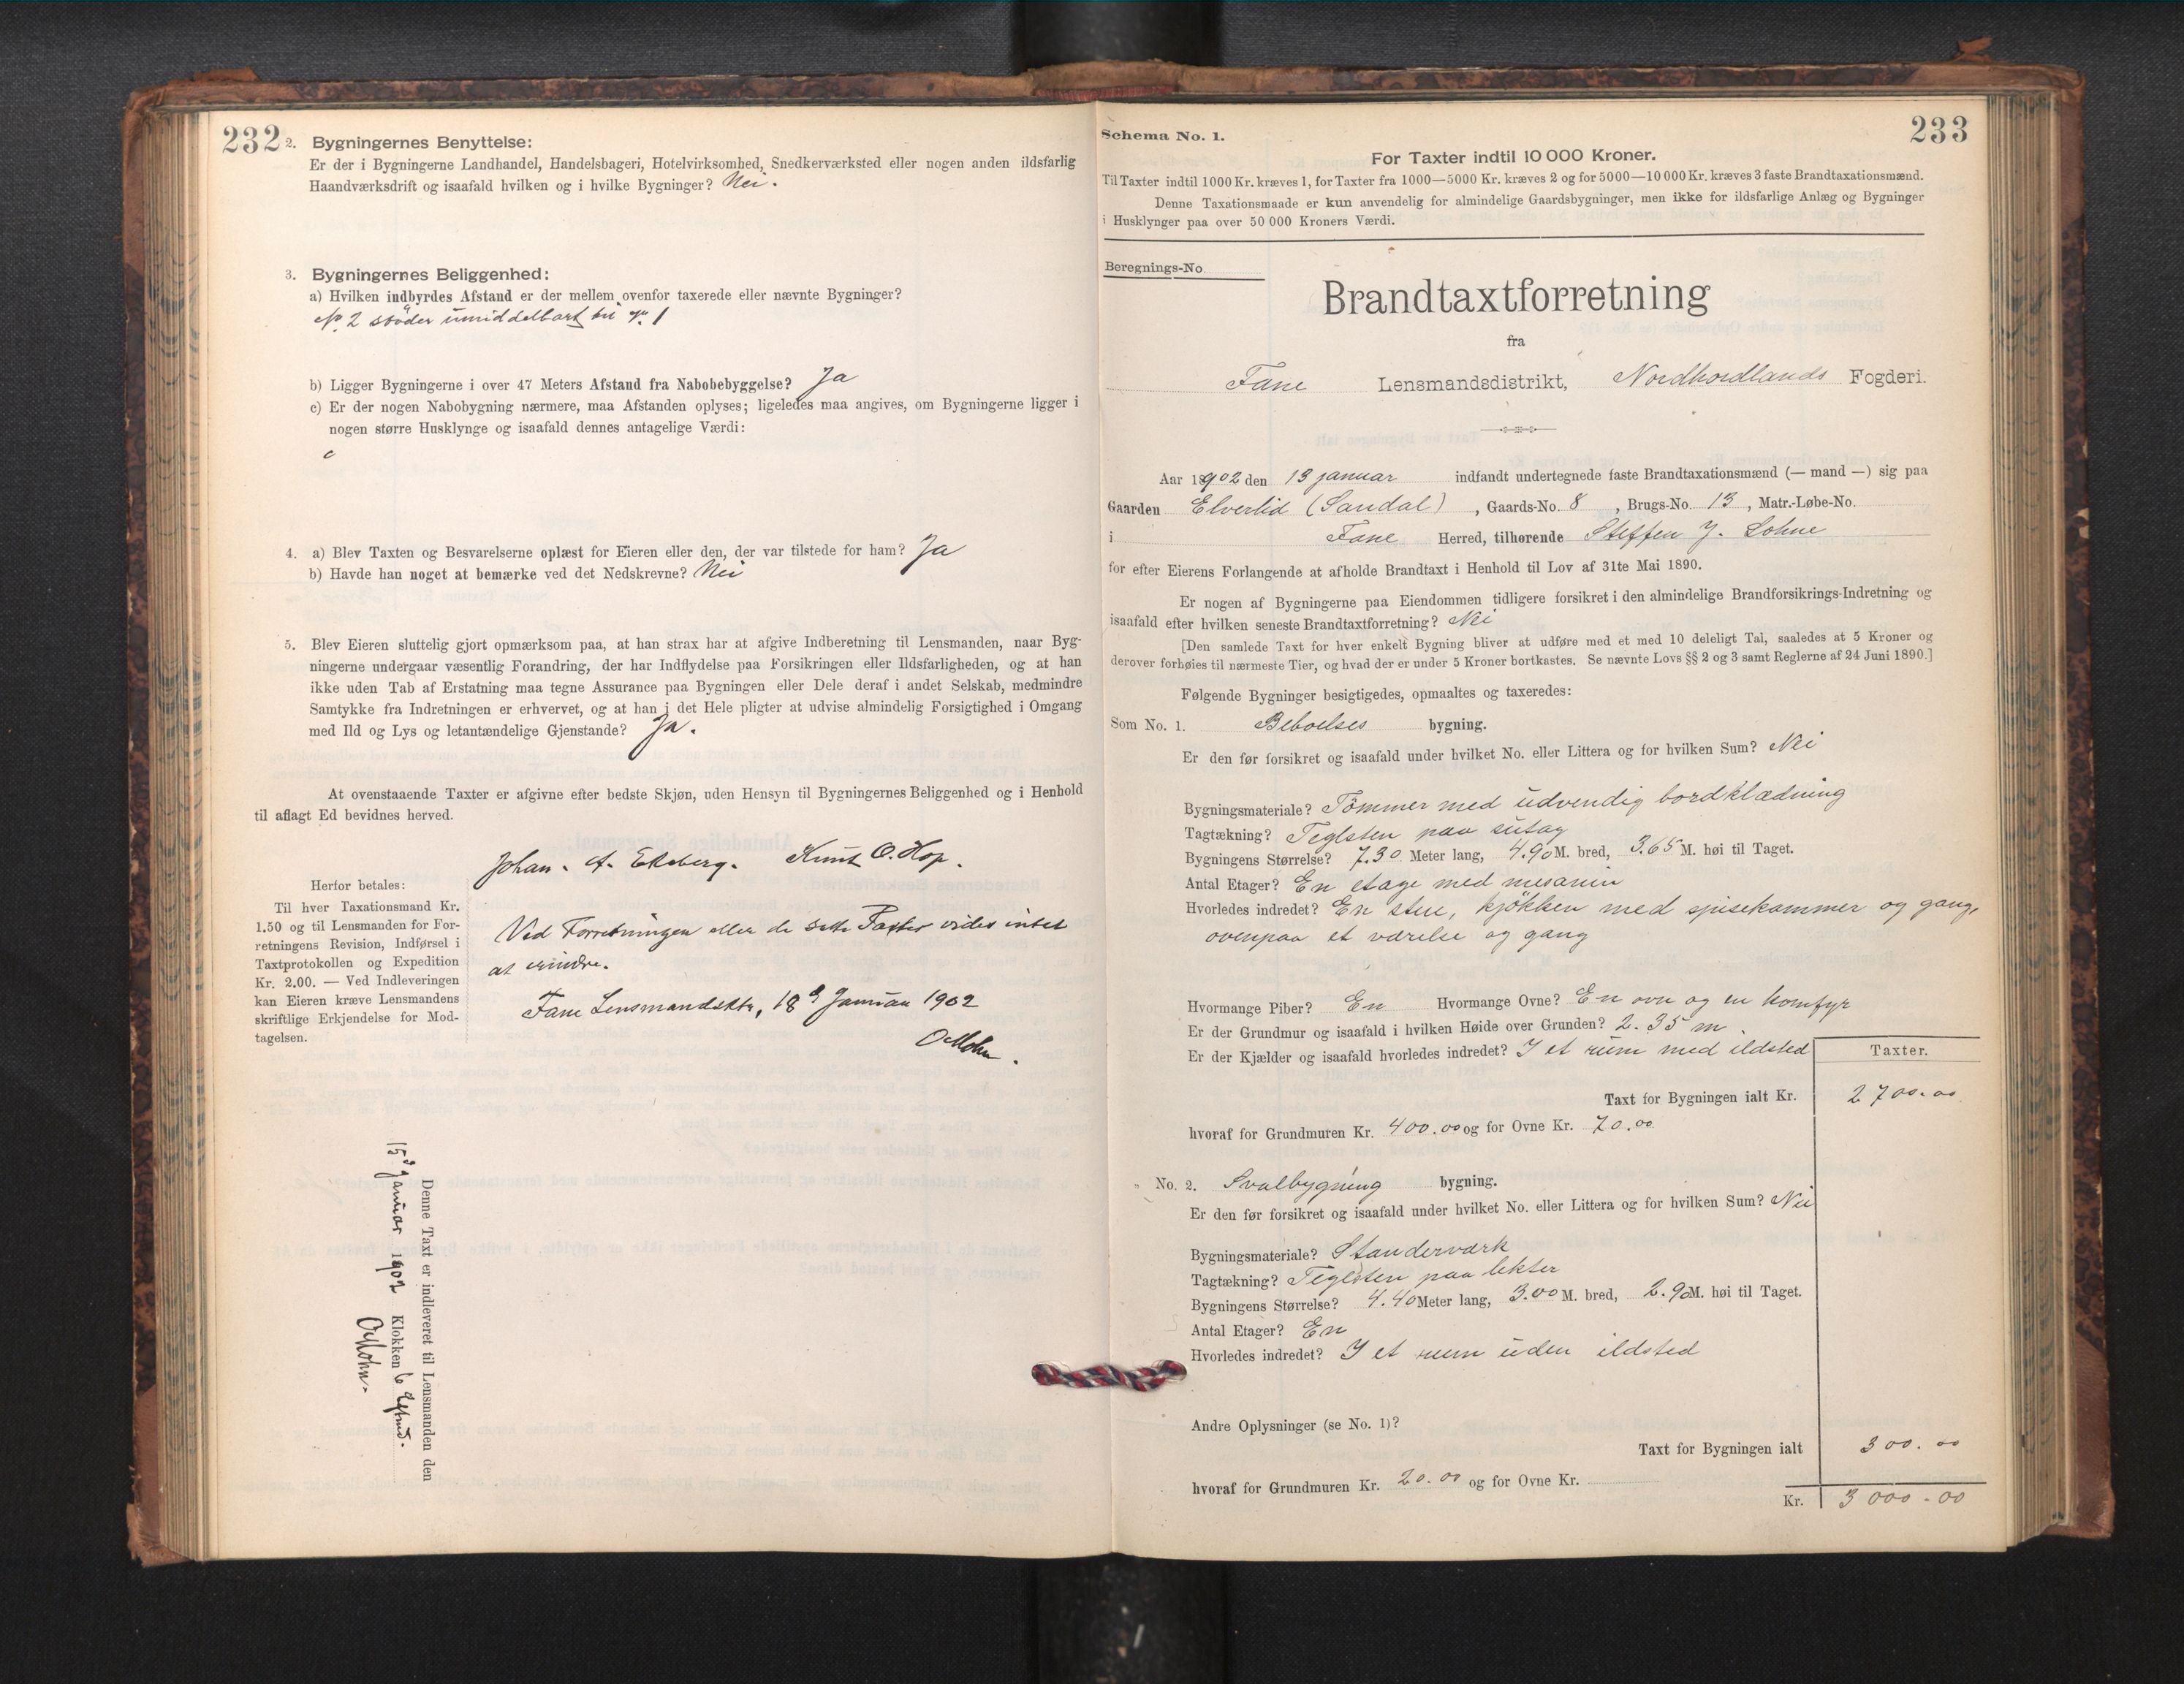 232
2. Bygningernes Benyttelse:
Er der i Bygningerne Landhandel, Handelsbageri, Hotelvirksomhed, Snedkerværksted eller nogen anden ildsfarlig
Haandværksdrift og isaafald hvilken og i hvilke Bygninger? Nei.
3. Bygningernes Beliggenhed:
a) Hvilken indbyrdes Afstand er der mellem ovenfor taxerede eller nævnte Bygninger?
No. 2 støder umiddelbart til No. 1
b) Ligger Bygningerne i over 47 Meters Afstand fra Nabobebyggelse? Ja
c) Er der nogen Nabobygning nærmere, maa Afstanden oplyses; ligeledes maa angives, om Bygningerne ligger i
nogen større Husklynge og isaafald dennes antagelige Værdi:
c
4. a) Blev Taxten og Besvarelserne oplæst for Eieren eller den, der var tilstede for ham? Ja
b) Havde han noget at bemærke ved det Nedskrevne? Nei
5. Blev Eieren sluttelig gjort opmærksom paa, at han strax har at afgive Indberetning til Lensmanden, naar Byg-
ningerne undergaar væsentlig Forandring, der har Indflydelse paa Forsikringen eller Ildsfarligheden, og at han
ikke uden Tab af Erstatning maa tegne Assurance paa Bygningen eller Dele deraf i andet Selskab, medmindre
Samtykke fra Indretningen er erhvervet, og at han i det Hele pligter at udvise almindelig Forsigtighed i Omgang
med Ild og Lys og letantændelige Gjenstande? Ja.
At ovenstaaende Taxter er afgivne efter bedste Skjøn, uden Hensyn til Bygningernes Beliggenhed og i Henhold
til aflagt Ed bevidnes herved.
Johan. A. Ekeberg. Knut O. Hop.
Herfor betales:
Til hver Taxationsmand Kr.
1.50 og til Lensmanden for For-
retningens Revision, Indførsel i
Taxtprotokollen og Expedition
Kr. 2.00. — Ved Indleveringen
kan Eieren kræve Lensmandens
skriftlige Erkjendelse for Mod-
tagelsen.
Ved Forretningen eller de satte Taxter vides intet
at erindre.
Fane Lensmandsktr, 18 Januar 1902
O Mohn.
Denne Taxt er indleveret til Lensmanden den
15 Januar 1902 Klokken 6 Eftmd.
O Mohn.
Schema No. 1.
233
For Taxter indtil 10 000 Kroner.
Til Taxter indtil 1000 Kr. kræves 1, for Taxter fra 1000—5000 Kr. kræves 2 og for 5000—10 000 Kr. kræves 3 faste Brandtaxationsmænd.
Denne Taxationsmaade er kun anvendelig for almindelige Gaardsbygninger, men ikke for ildsfarlige Anlæg og Bygninger
i Husklynger paa over 50 000 Kroners Værdi.
Beregnings-No
Brandtaxtforretning
fra
Fane Lensmandsdistrikt, Nordhordlands Fogderi.
Aar 1902 den 13 januar indfandt undertegnede faste Brandtaxationsmænd (— mand —) sig paa
Gaarden Elverlid (Sandal), Gaards-No. 8, Brugs-No. 13, Matr.-Løbe-No.
i Fane Herred, tilhørende Steffen J. Lohne
for efter Eierens Forlangende at afholde Brandtaxt i Henhold til Lov af 31te Mai 1890.
Er nogen af Bygningerne paa Eiendommen tidligere forsikret i den almindelige Brandforsikrings-Indretning og
isaafald efter hvilken seneste Brandtaxtforretning? Nei
[Den samlede Taxt for hver enkelt Bygning bliver at udføre med et med 10 deleligt Tal, saaledes at 5 Kroner og
derover forhøies til nærmeste Tier, og hvad der er under 5 Kroner bortkastes. Se nævnte Lovs §§ 2 og 3 samt Reglerne af 24 Juni 1890.]
Følgende Bygninger besigtigedes, opmaaltes og taxeredes:
Som No. 1. Beboelses bygning.
Er den før forsikret og isaafald under hvilket No. eller Littera og for hvilken Sum? Nei
Bygningsmateriale? Tømmer med udvendig bordklædning
Tagtækning? Teglsten paa sutag
Bygningens Størrelse? 7.30 Meter lang, 4.90 M. bred, 3.65 M. høi til Taget.
Antal Etager? En etage med mesanin
Hvorledes indredet? En stue, kjøkken med spisekammer og gang,
ovenpaa et værelse og gang
Hvormange Piber? En Hvormange Ovne? En ovn og en komfyr
Er der Grundmur og isaafald i hvilken Høide over Grunden? 2.35 m.
Er der Kjælder og isaafald hvorledes indredet? I et rum med ildsted
Taxter.
Taxt for Bygningen ialt Kr. 2700.00
hvoraf for Grundmuren Kr. 400.00 og for Ovne Kr. 70.00
" No. 2. Svalbygning bygning.
Er den før forsikret og isaafald under hvilket No. eller Littera og for hvilken Sum? Nei
Bygningsmateriale? Standerværk
Tagtækning? Teglsten paa lekter
Bygningens Størrelse? 4.40 Meter lang, 3.00 M. bred, 2.90 M. høi til Taget.
Antal Etager? En
Hvorledes indredet? I et rum uden ildsted
Andre Oplysninger (se No. 1)?
Taxt for Bygningen ialt 300.00
hvoraf for Grundmuren Kr. 20.00 og for Ovne Kr.
Kr. 3000.00